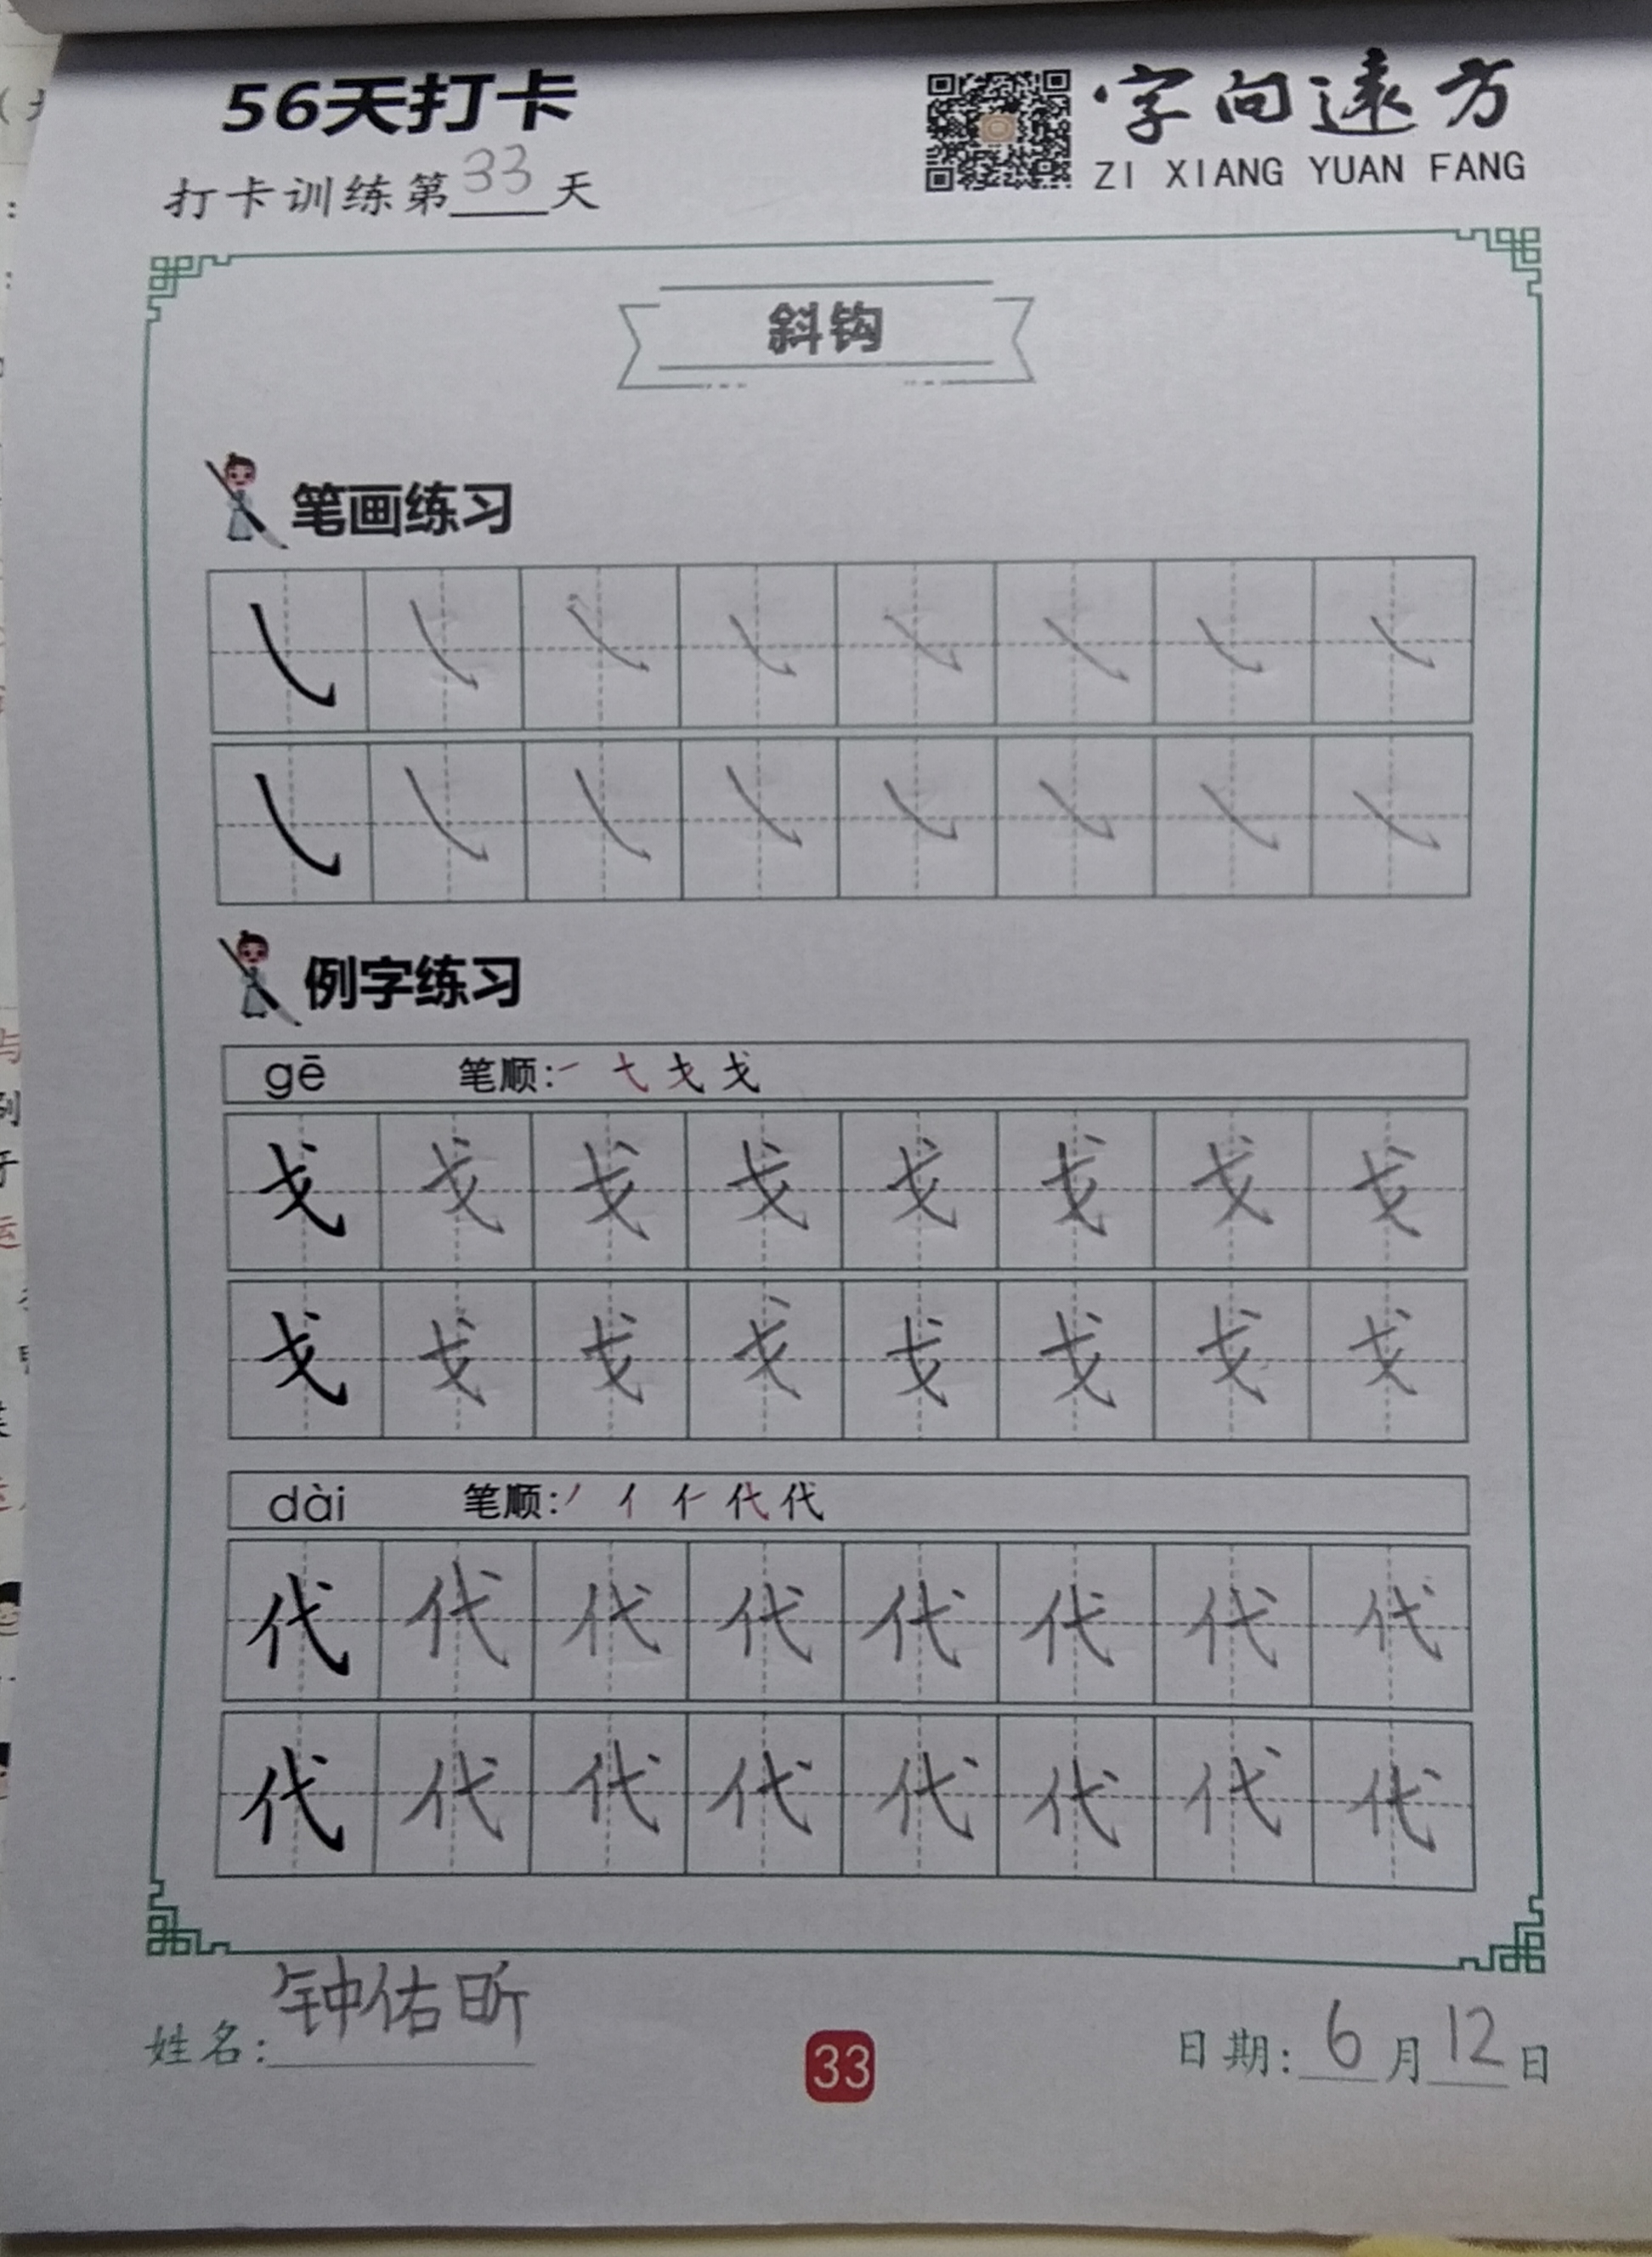 56天打卡
字向遠方
ZI XIANG YUAN FANG
打卡训练第33天
斜钩
笔画练习
㇂ ㇂ ㇂ ㇂ ㇂ ㇂ ㇂ ㇂
㇂ ㇂ ㇂ ㇂ ㇂ ㇂ ㇂ ㇂
例字练习
gē 笔顺:一 弋 戈 戈
戈 戈 戈 戈 戈 戈 戈 戈
戈 戈 戈 戈 戈 戈 戈 戈
dài 笔顺:丿 亻 仁 代 代
代 代 代 代 代 代 代 代
代 代 代 代 代 代 代 代
姓名:钟佑昕
33
日期:6月12日